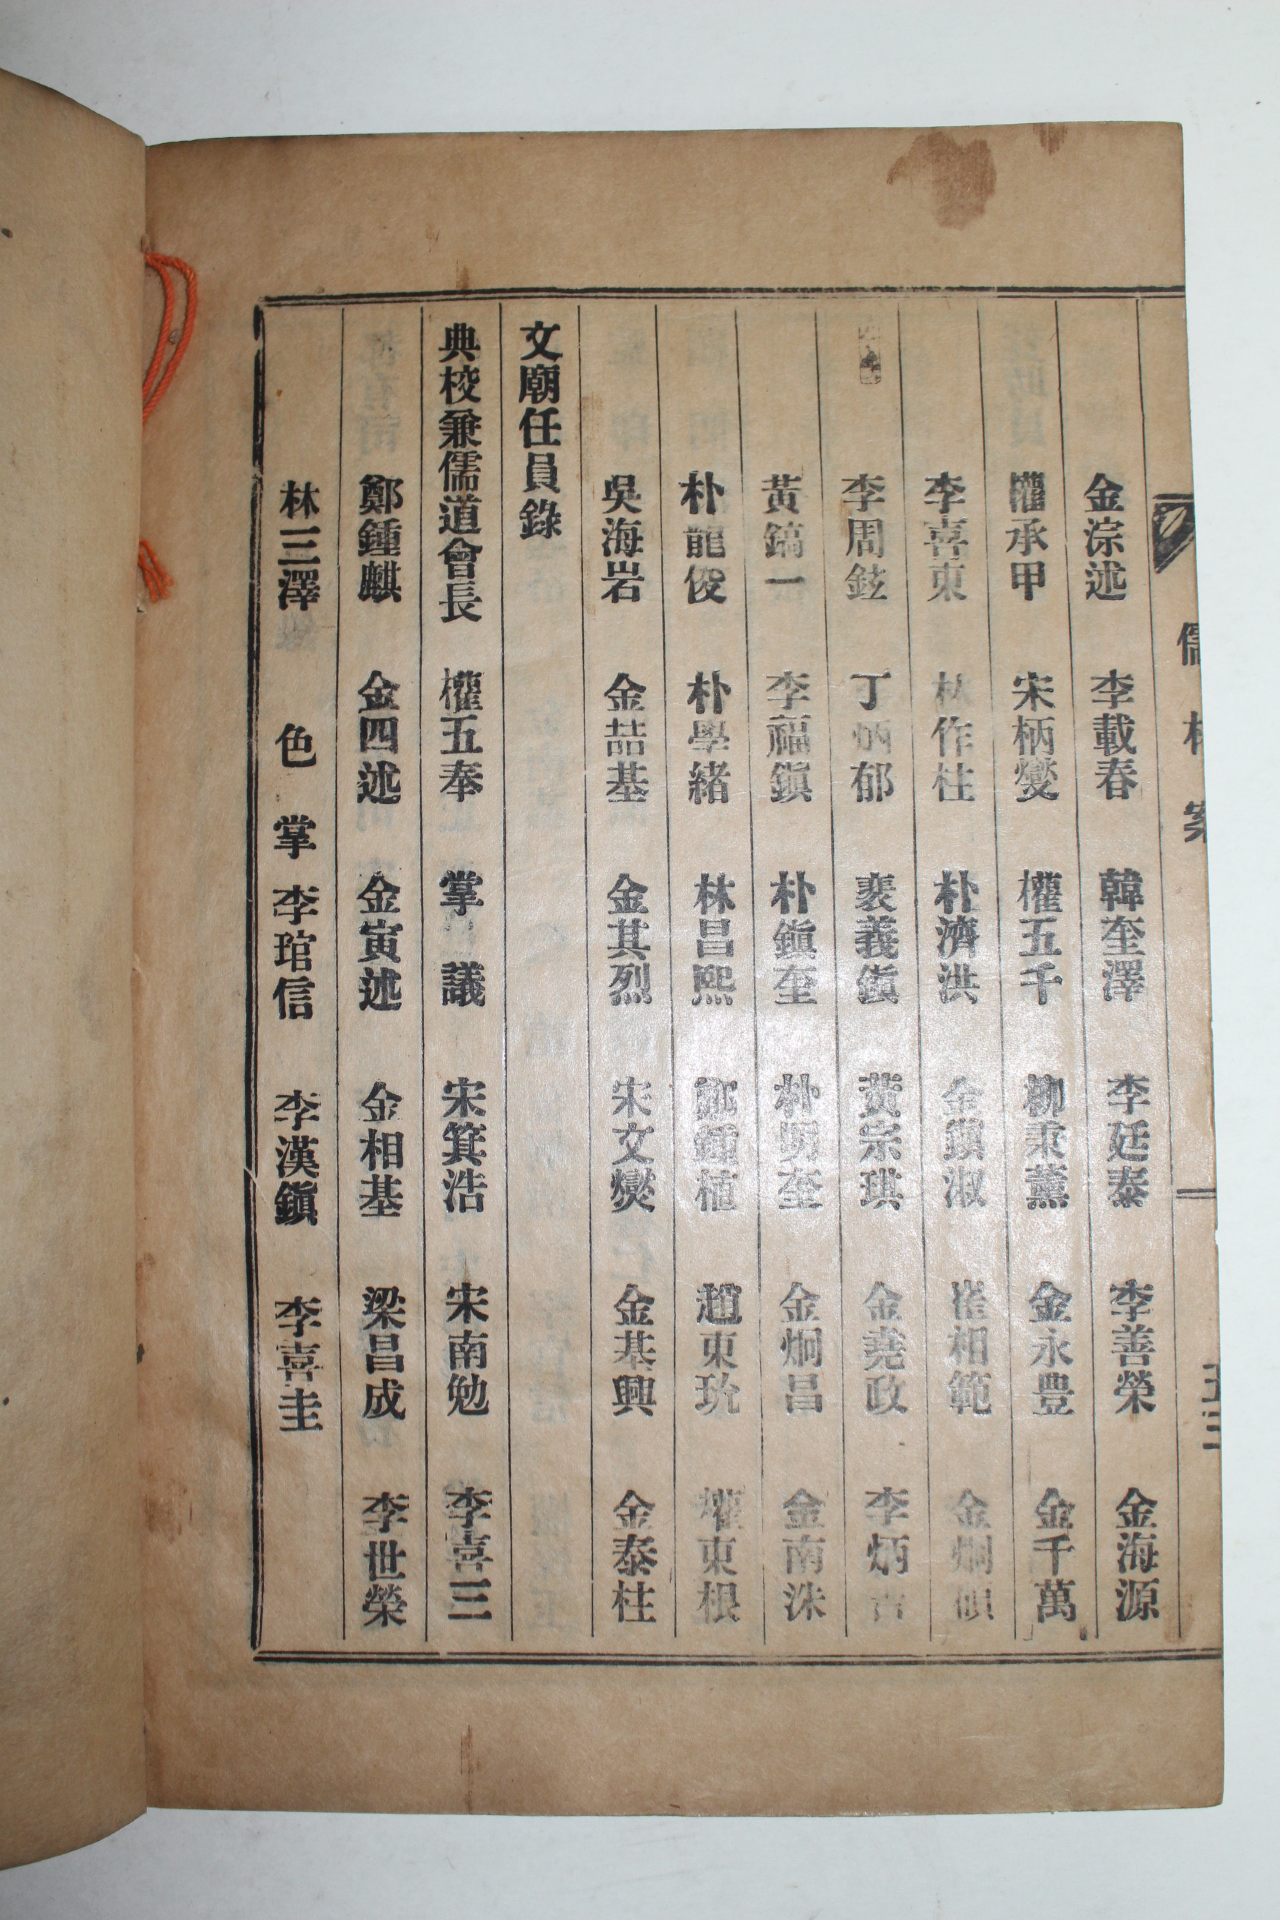 儒林案
五三
金淙述 李載春 韓奎澤 李廷泰 李善榮 金海源
權承甲 宋柄燮 權五千 柳秉薰 金永豊 金千萬
李喜東 林作柱 朴濟洪 金鎭淑 崔相範 金炯碩
李周鉉 丁炳郁 裵義鎭 黃宗琪 金堯政 李炳吉
黃鎬一 李福鎭 朴鎭奎 朴明奎 金炯昌 金南洙
朴龍俊 朴學緖 林昌熙 鄭鍾植 趙東玧 權東根
吳海岩 金喆基 金其烈 宋文燮 金基興 金泰柱
文廟任員錄
典校兼儒道會長 權五奉 掌議 宋箕浩 宋南勉 李喜三
鄭鍾麒 金四述 金寅述 金相基 梁昌成 李世榮
林三澤 色掌 李琯信 李漢鎭 李喜圭